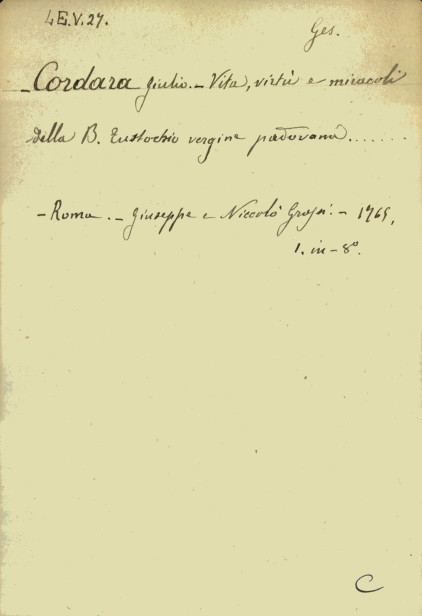 4E.V.27.
Ges.
- Cordara Giulio. - Vita, virtù e miracoli
della B. Eustochio vergine padovana.......
- Roma. - Giuseppe e Niccolò Grossi. - 1765,
1. in - 8º.
C